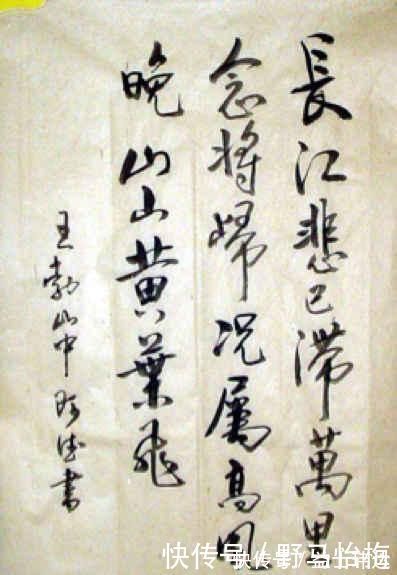 長江悲已滯萬里
念將歸況屬高風
晚山山黃葉飛
王勃山中
书
快传号／野马怡梅
快传号／